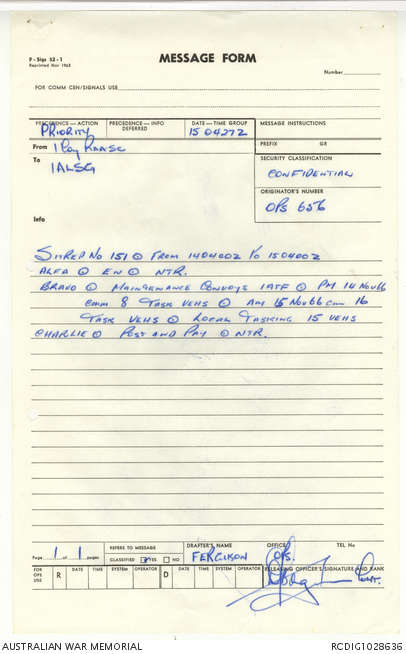 F - Sigs 52 - 1
Reprinted Nov 1965
MESSAGE FORM
Number
FOR COMM CEN/SIGNALS USE
PRECEDENCE — ACTION
PRIORITY
PRECEDENCE — INFO
DEFERRED
DATE — TIME GROUP
150427Z
MESSAGE INSTRUCTIONS
From 1 Coy RAASC
PREFIX GR
To 1ALSG
SECURITY CLASSIFICATION
CONFIDENTIAL
ORIGINATOR'S NUMBER
OPS 656
Info
SITREP NO 151 ⊙ FROM 140400Z TO 150400Z
ALFA ⊙ EN ⊙ NTR.
BRAVO ⊙ MAINTENANCE CONVOYS 1ATF ⊙ PM 14 NOV 66
CMM 8 TASK VEHS ⊙ AM 15 NOV 66 CMM 16
TASK VEHS ⊙ LOCAL TASKING 15 VEHS
CHARLIE ⊙ POST AND PAY ⊙ NTR.
Page 1 of 1 pages
REFERS TO MESSAGE
CLASSIFIED YES NO
DRAFTER'S NAME
FERGUSON
OFFICE
OPS.
TEL No
FOR OPS USE
R DATE TIME SYSTEM OPERATOR D DATE TIME SYSTEM OPERATOR
RELEASING OFFICER'S SIGNATURE AND RANK
AUSTRALIAN WAR MEMORIAL
RCDIG1028636